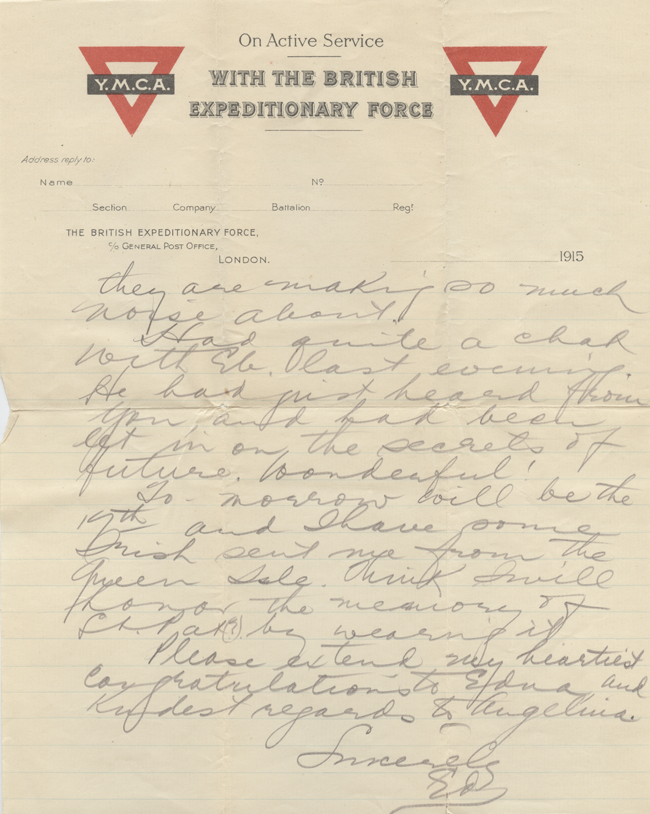 On Active Service
WITH THE BRITISH
EXPEDITIONARY FORCE
Y.M.C.A.
Y.M.C.A.
Address reply to:
Name No
Section Company Battalion Regt
THE BRITISH EXPEDITIONARY FORCE,
c/o GENERAL POST OFFICE,
LONDON.
1915
they are making so much
noise about.
Had quite a chat
with Eb. last evening.
He had just heard from
you and had been
let in on the secrets of
future. Wonderful!
To-morrow will be the
17th and I have some
Irish sent me from the
Green Isle. Think I will
honor the memory of
St. Pat(?) by wearing it.
Please extend my heartiest
congratulations to Edna and
Kindest regards to Angelina.
Sincerely
Ed